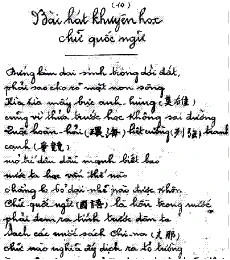 (10)
Bài hát khuyên học
chữ quốc ngữ
làm dai sinh trong dời dất,
phải sao cho rõ mặt non sông
Kìa kìa mấy bực anh hùng (英雄)
cũng vì thủa trước học không sai dường
Cuộc hoàn hải (環海) liệt cường (列强) tranh
cạnh (爭競)
mở trí dân dầu mạnh biết bao
nước ta học vấn thế nào
chẳng lo bỏ dại nhẽ nào dược khôn
Chữ quốc ngữ (國語) là hồn trong nước
phải dem ra tính trước dân ta
Sách các nước sách Chi-na (支那)
chữ nào nghĩa ấy dịch ra tỏ tường